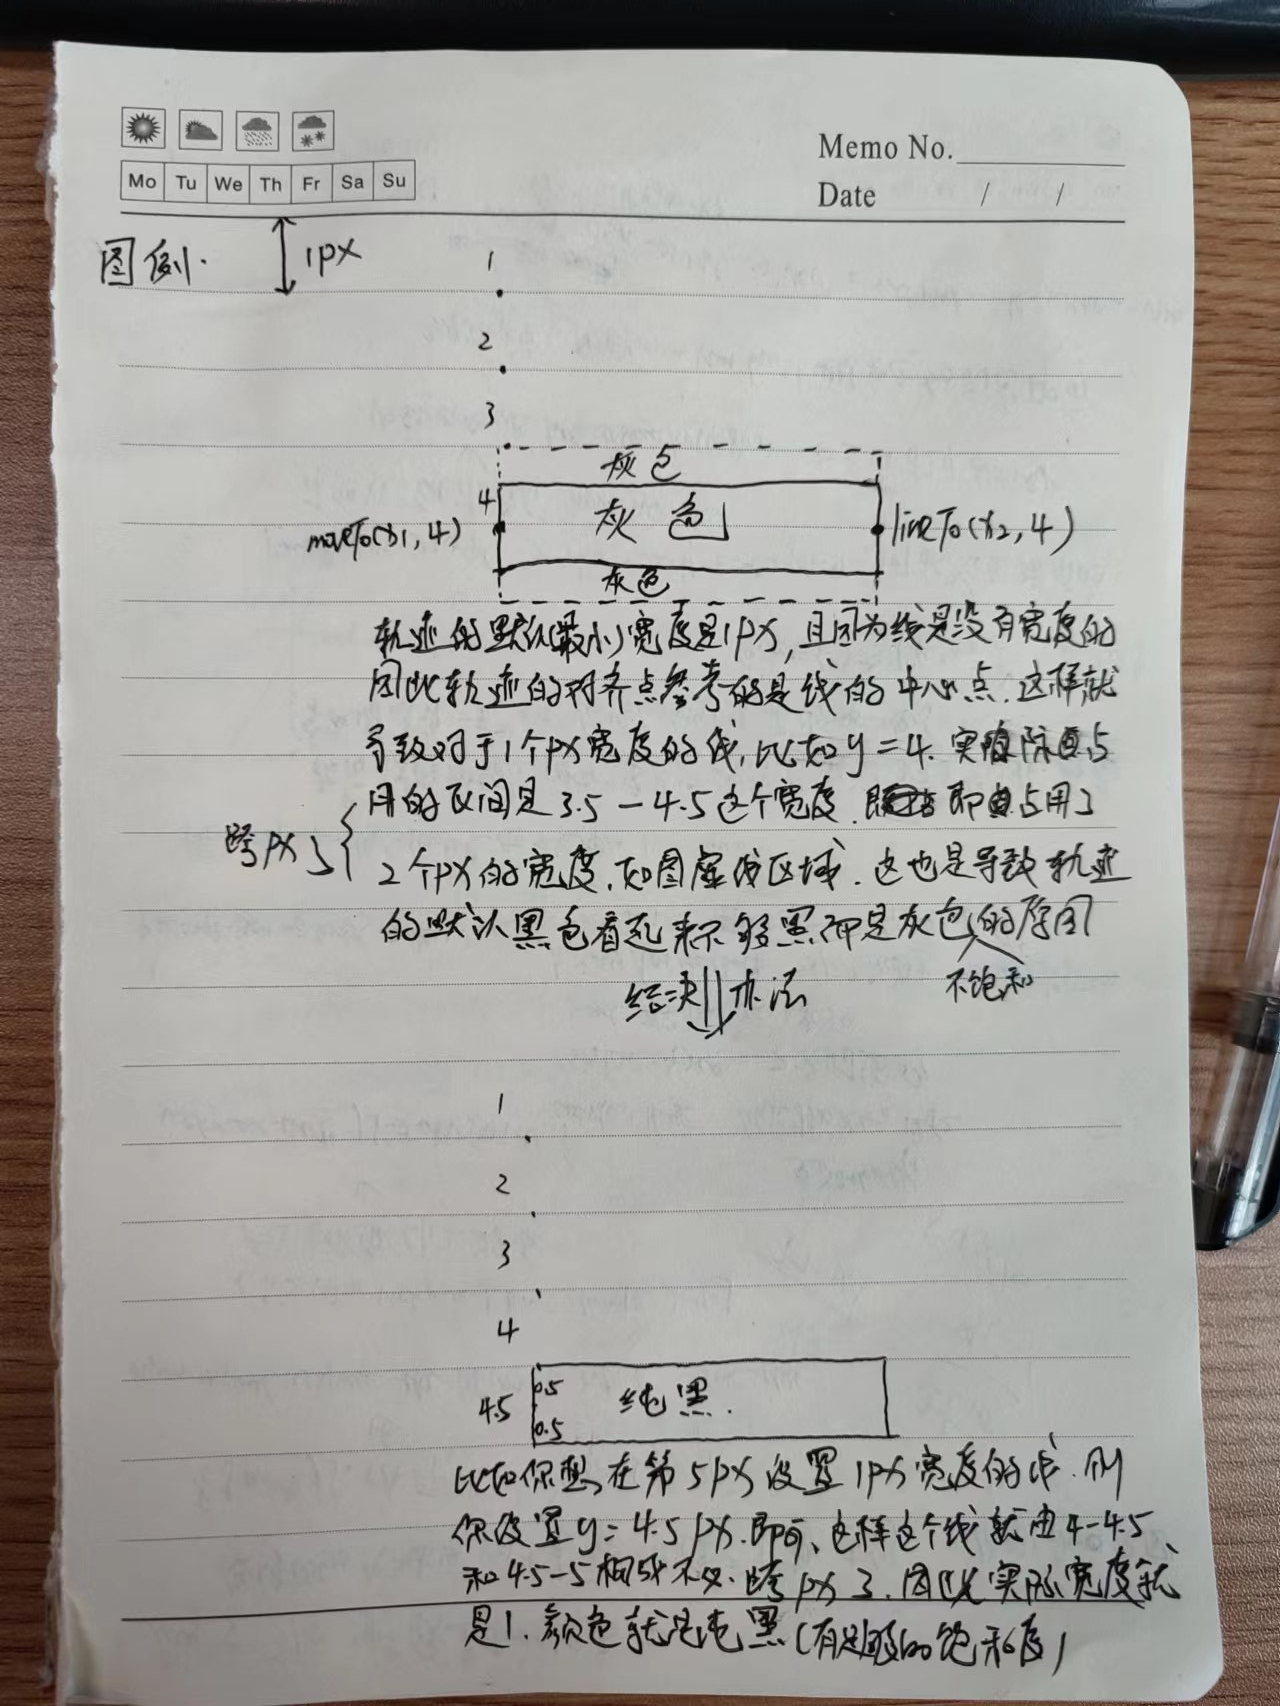 Memo No.
Mo Tu We Th Fr Sa Su
Date / /
图例. 1px
1
2
3
灰色
4
灰色
moveTo(x1, 4)
lineTo(x2, 4)
灰色
轨迹的默认(最小)宽度是1px,且因为线是没有宽度的
因此轨迹的对齐点参考的是线的中心点.这样就
导致对于1个px宽度的线,比如y=4.实际占
用的区间是3.5-4.5这个宽度.即占用了
跨px了
2个px的宽度,如图虚线区域.这也是导致轨迹
的默认黑色看起来不够黑而是灰色的原因
不饱和
结决办法
1
2
3
4
4.5
0.5
0.5
纯黑.
比如你想在第5px设置1px宽度的线.则
你设置y=4.5px.即可、这样这个线就由4-4.5
和4.5-5构成不必跨px了.因此实际宽度就
是1.颜色就是纯黑(有足够的饱和度)